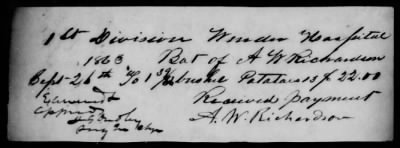 1st Division Winder Hospital
1863 Bot of A W Richardson
Sept 26th To 1 bushel Potatoes $ 22.00
Received payment
A. W. Richardson